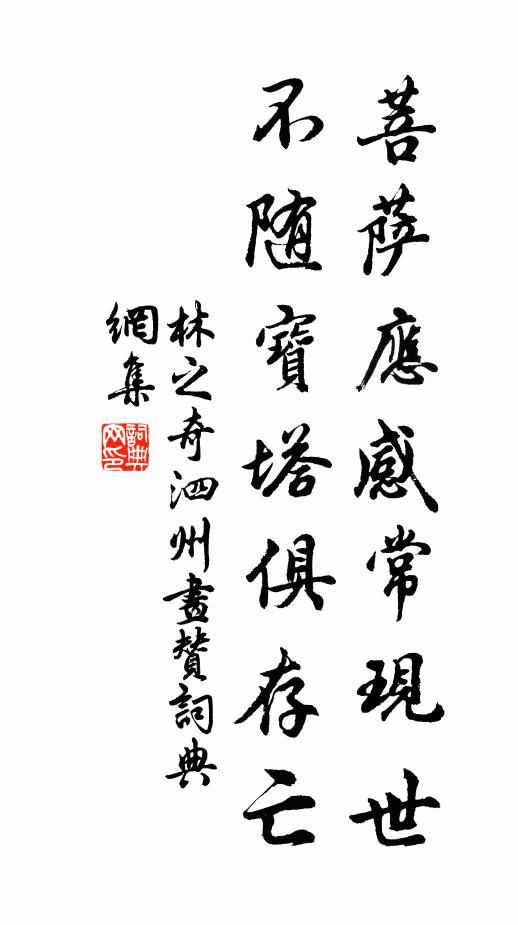 菩薩應感常現世
不随寶塔俱存亡
林之奇泗州畫贊詞典
網集
詞典網印